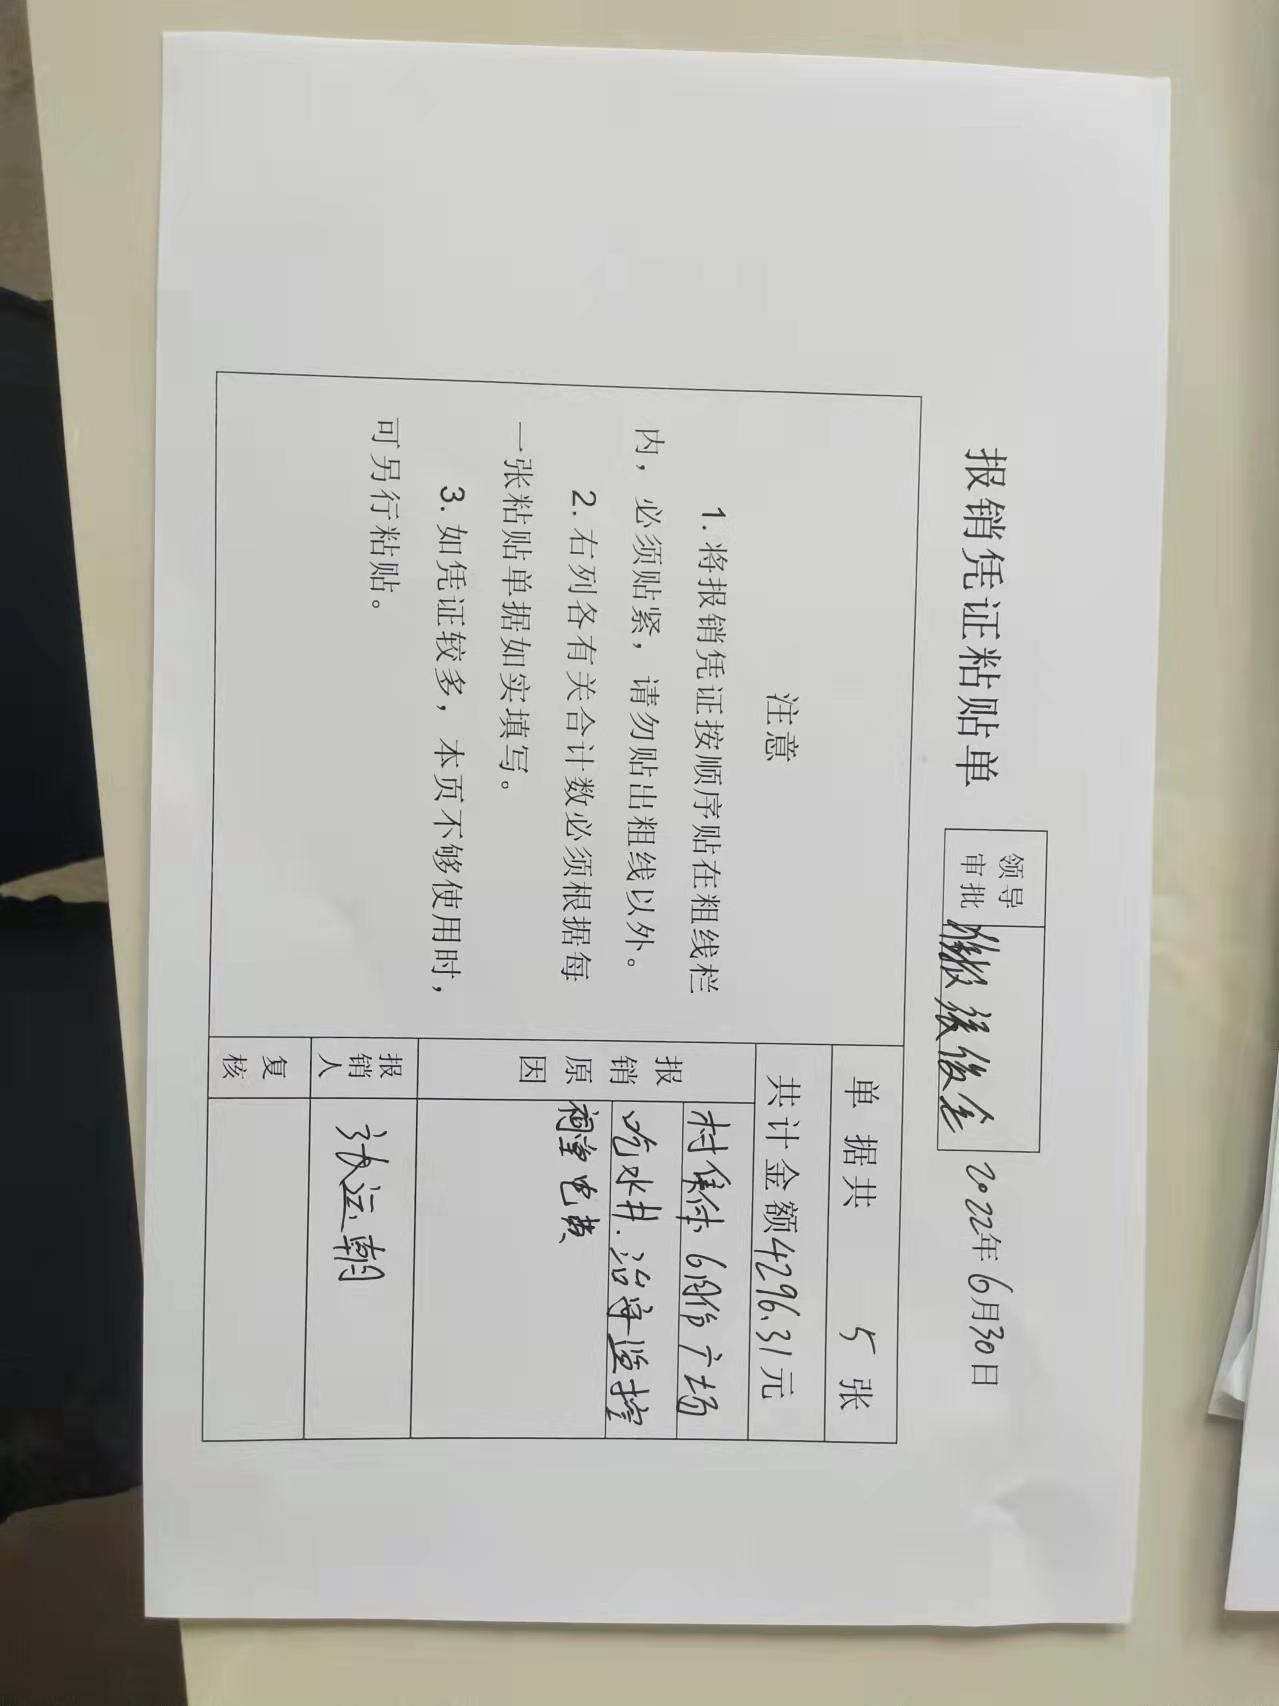 报销凭证粘贴单
领导
审批 准报 张俊金
2022年6月30日
注意
1. 将报销凭证按顺序贴在粗线栏
内，必须贴紧，请勿贴出粗线以外。
2. 右列各有关合计数必须根据每
一张粘贴单据如实填写。
3. 如凭证较多，本页不够使用时，
可另行粘贴。
单据共 5 张
共计金额4296.31元
报销原因
村集体6月份广场
吃水井.治安监控
祠堂电费
报销人 张运朝
复核